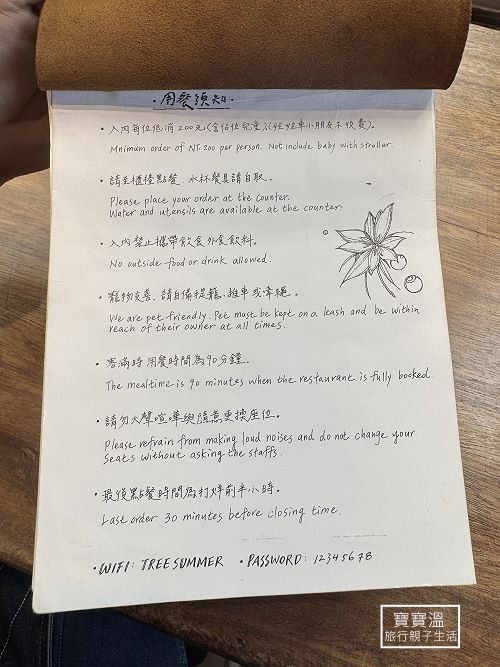 ·用餐須知·
·入內每位低消200元(含佔位兒童)(娃娃車小朋友不收費)。
Mnimum order of NT.200 per person. Not include baby with stroller.
·請至櫃檯點餐、水杯餐具請自取。
Please place your order at the counter.
Water and utensils are available at the counter.
·入內禁止攜帶飲食外食飲料。
No outside food or drink allowed.
·寵物友善,請自備提籠、推車或牽繩。
We are pet friendly. Pet must be kept on a leash and be within
reach of their owner at all times.
·客滿時用餐時間為90分鐘。
The mealtime is 90 minutes when the restaurant is fully booked.
·請勿大聲喧嘩與隨意更換座位。
Please refrain from making loud noises and do not change your
seats without asking the staffs.
·最後點餐時間為打烊前半小時。
Last order 30 minutes before closing time.
·WIFI: TREESUMMER ·PASSWORD: 12345678
寶寶溫
旅行親子生活